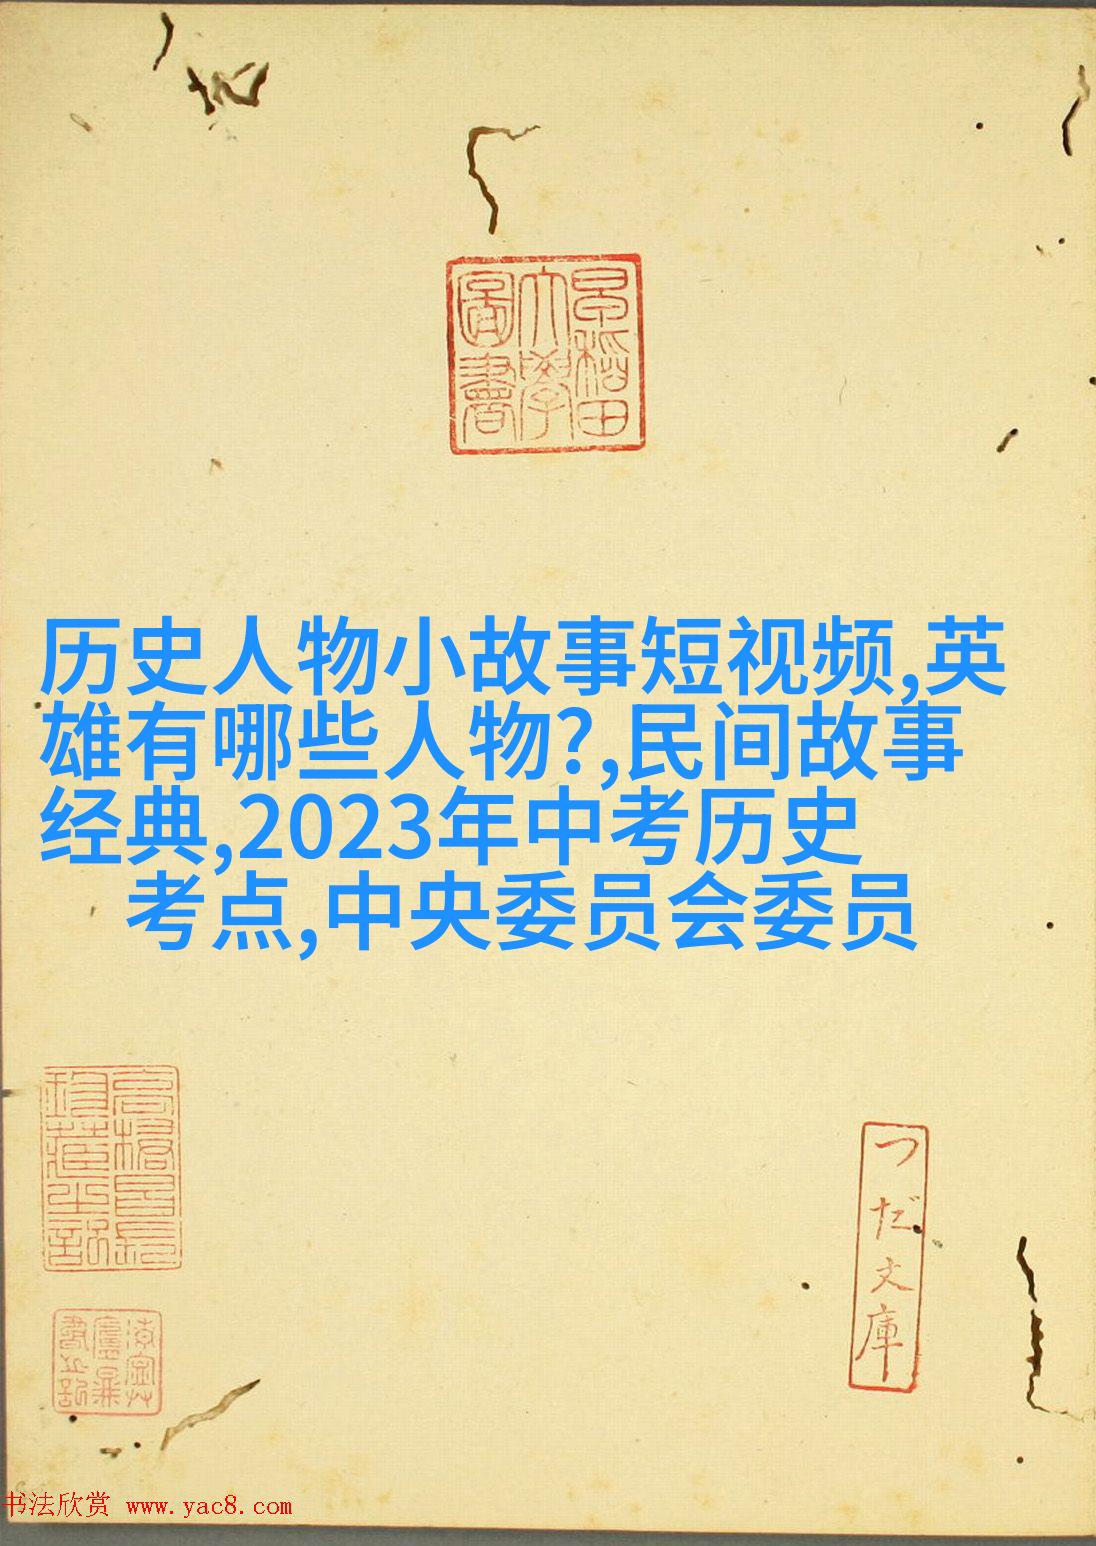 早稻田
大學
圖書
历史人物小故事短视频,英
雄有哪些人物?,民间故事
经典,2023年中考历史
考点,中央委员会委员
つだ文庫
书法欣赏 www.yac8.com